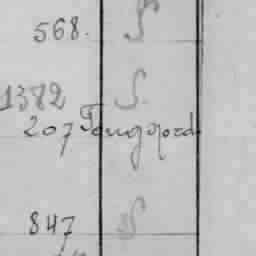 568. S
1382 S.
207 Tangvord
847 S